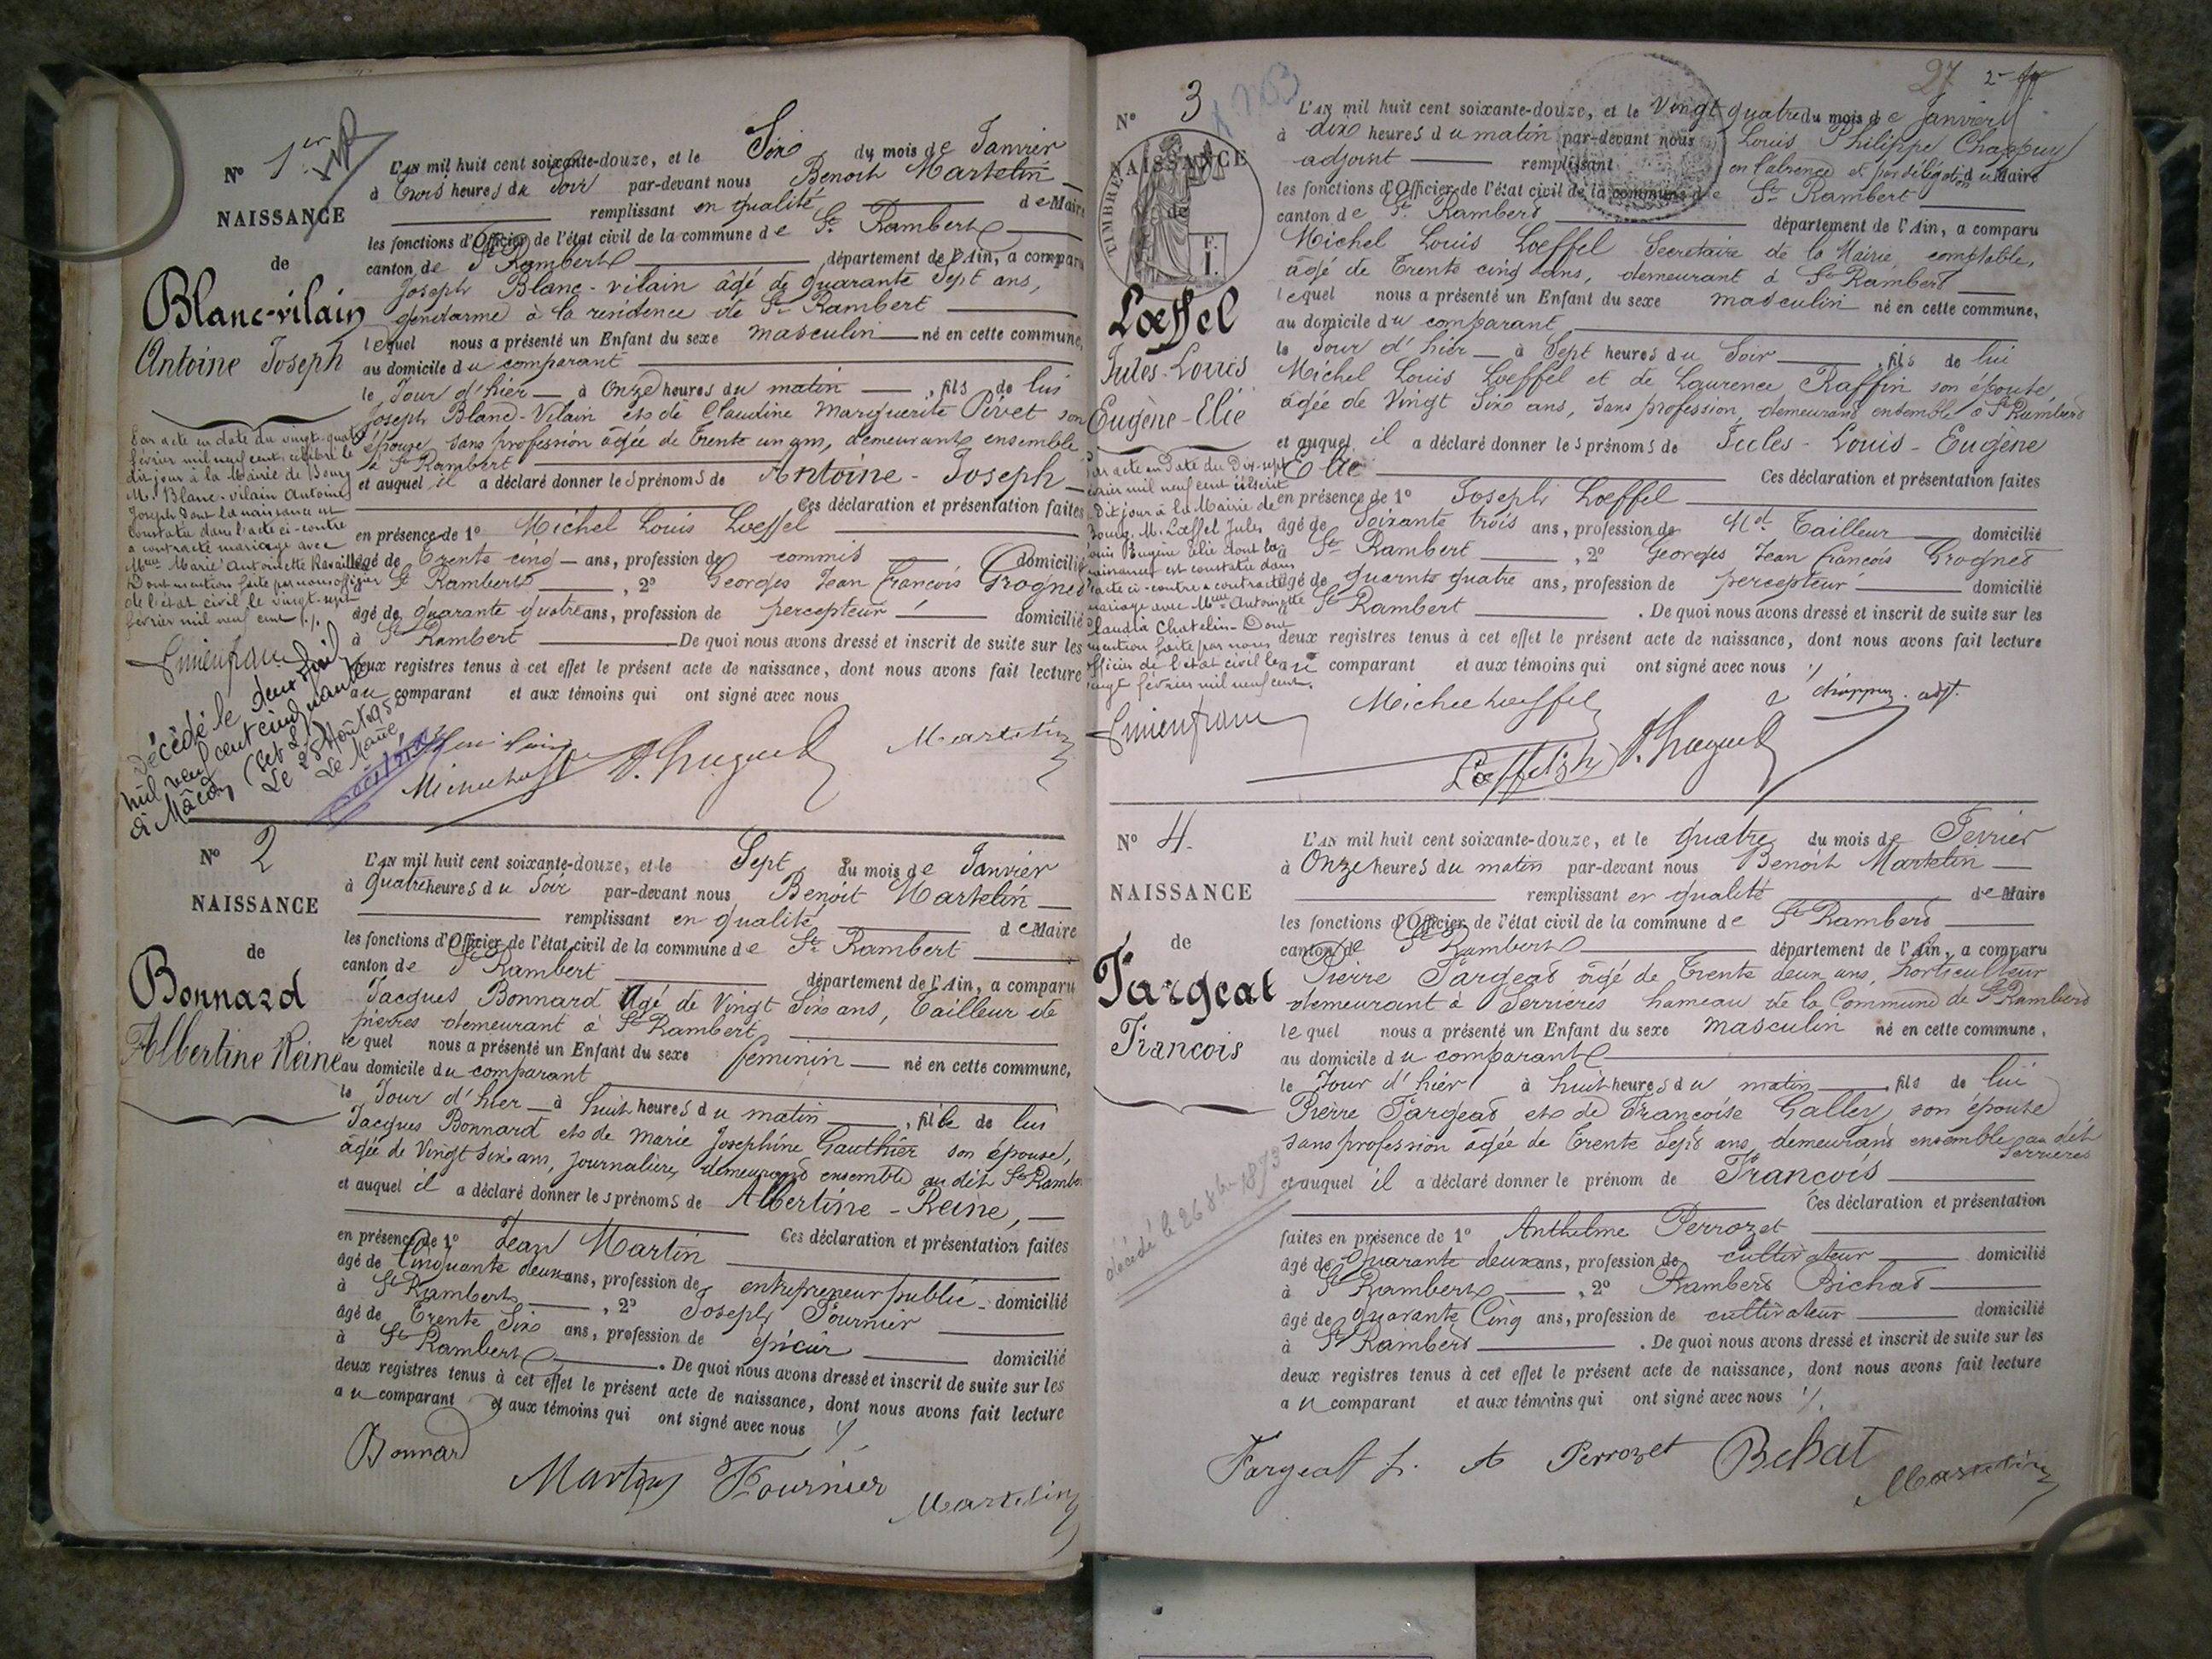 N° 1er
NAISSANCE
de
Blanc-vilain
Antoine Joseph
L'AN mil huit cent soixante-douze, et le Six du mois de Janvier
à Trois heures du Soir par-devant nous Benoit Martelin
remplissant en qualité de Maire
les fonctions d'Officier de l'état civil de la commune de St Rambert
canton de St Rambert département de l'Ain, a comparu
Joseph Blanc-vilain âgé de quarante Sept ans,
gendarme à la residence de St Rambert
lequel nous a présenté un Enfant du sexe masculin né en cette commune,
au domicile du comparant
le Jour d'hier à Onze heures du matin, fils de lui
Joseph Blanc-Vilain et de Claudine Marguerite Pivet son
épouse, sans profession âgée de Trente un ans, demeurant ensemble
à St Rambert
et auquel il a déclaré donner les prénoms de Antoine-Joseph
Ces déclaration et présentation faites
en présence de 1° Michel Louis Loeffel
âgé de Trente cinq ans, profession de commis domicilié
à St Rambert, 2° Georges Jean François Grognet
âgé de quarante quatre ans, profession de percepteur domicilié
à St Rambert De quoi nous avons dressé et inscrit de suite sur les
deux registres tenus à cet effet le présent acte de naissance, dont nous avons fait lecture
au comparant et aux témoins qui ont signé avec nous
Martelin
Par acte en date du vingt-quatre
février mil neuf cent, célébré le
dit jour à la Mairie de Bourg
M. Blanc-vilain Antoine
Joseph dont la naissance est
constatée dans l'acte ci-contre
a contracté mariage avec
Melle Marie Antoinette Ravailler
Dont mention faite par nous officier
de l'état civil le vingt-sept
février mil neuf cent ./.
Décédé le deux Avril
mil neuf cent cinquante
à Mâcon (S et L)
Le 25 Août 1950
Le Maire,
N° 2
NAISSANCE
de
Bonnard
Albertine Reine
L'AN mil huit cent soixante-douze, et le Sept du mois de Janvier
à quatre heures du Soir par-devant nous Benoit Martelin
remplissant en qualité de Maire
les fonctions d'Officier de l'état civil de la commune de St Rambert
canton de St Rambert département de l'Ain, a comparu
Jacques Bonnard Agé de Vingt Six ans, Tailleur de
pierres demeurant à St Rambert
lequel nous a présenté un Enfant du sexe feminin né en cette commune,
au domicile du comparant
le Jour d'hier à huit heures du matin, fille de lui
Jacques Bonnard et de Marie Josephine Gauthier son épouse,
âgée de Vingt Six ans, journalière, demeurant ensemble au dit St Rambert
et auquel il a déclaré donner les prénoms de Albertine-Reine,
Ces déclaration et présentation faites
en présence de 1° Jean Martin
âgé de Cinquante deux ans, profession de entrepreneur public domicilié
à St Rambert, 2° Joseph Fournier
âgé de Trente Six ans, profession de épicier domicilié
à St Rambert. De quoi nous avons dressé et inscrit de suite sur les
deux registres tenus à cet effet le présent acte de naissance, dont nous avons fait lecture
au comparant et aux témoins qui ont signé avec nous ./.
Bonnard Martin Fournier Martelin
27
N° 3
NAISSANCE
de
TIMBRE
Loeffel
Jules-Louis
Eugène-Elie
L'AN mil huit cent soixante-douze, et le Vingt quatre du mois de Janvier
à dix heures du matin par-devant nous Louis Philippe Chappuy
adjoint remplissant en l'absence et par délégation du Maire
les fonctions d'Officier de l'état civil de la commune de St Rambert
canton de St Rambert département de l'Ain, a comparu
Michel Louis Loeffel Secretaire de la Mairie, comptable,
âgé de Trente cinq ans, demeurant à St Rambert
lequel nous a présenté un Enfant du sexe masculin né en cette commune,
au domicile du comparant
le Jour d'hier à Sept heures du Soir, fils de lui
Michel Louis Loeffel et de Laurence Raffin son épouse,
âgée de Vingt Six ans, sans profession, demeurant ensemble à St Rambert
et auquel il a déclaré donner les prénoms de Jules-Louis-Eugène
Elie Ces déclaration et présentation faites
en présence de 1° Joseph Loeffel
âgé de Soixante trois ans, profession de Md Tailleur domicilié
à St Rambert, 2° Georges Jean François Grognet
âgé de quarante quatre ans, profession de percepteur domicilié
à St Rambert. De quoi nous avons dressé et inscrit de suite sur les
deux registres tenus à cet effet le présent acte de naissance, dont nous avons fait lecture
au comparant et aux témoins qui ont signé avec nous ./.
Michel Loeffel Chappuy adjt.
Loeffel
Par acte en date du Dix-sept
février mil neuf cent célébré
dit jour à la Mairie de
Bourg, M. Loeffel Jules
Louis Eugène Elie dont la
naissance est constatée dans
l'acte ci-contre a contracté
mariage avec Melle Antoinette
Claudia Chatelin. Dont
mention faite par nous
officier de l'état civil le
vingt février mil neuf cent.
N° 4.
NAISSANCE
de
Fargeat
Francois
L'AN mil huit cent soixante-douze, et le quatre du mois de Fevrier
à Onze heures du matin par-devant nous Benoit Martelin
remplissant en qualité de Maire
les fonctions d'Officier de l'état civil de la commune de St Rambert
canton de St Rambert département de l'Ain, a comparu
Pierre Fargeat âgé de Trente deux ans, horticulteur
demeurant à Serrières hameau de la Commune de St Rambert
lequel nous a présenté un Enfant du sexe masculin né en cette commune,
au domicile du comparant
le Jour d'hier à huit heures du matin, fils de lui
Pierre Fargeat et de Françoise Galley, son épouse
sans profession âgée de Trente Sept ans, demeurant ensemble au dit
Serrières
et auquel il a déclaré donner le prénom de Francois
Ces déclaration et présentation
faites en présence de 1° Anthelme Perrozet
âgé de Quarante deux ans, profession de cultivateur domicilié
à St Rambert, 2° Rambert Bichat
âgé de quarante Cinq ans, profession de cultivateur domicilié
à St Rambert. De quoi nous avons dressé et inscrit de suite sur les
deux registres tenus à cet effet le présent acte de naissance, dont nous avons fait lecture
au comparant et aux témoins qui ont signé avec nous ./.
Fargeat P. A Perrozet Bichat Martelin
décédé le 26 8bre 1873